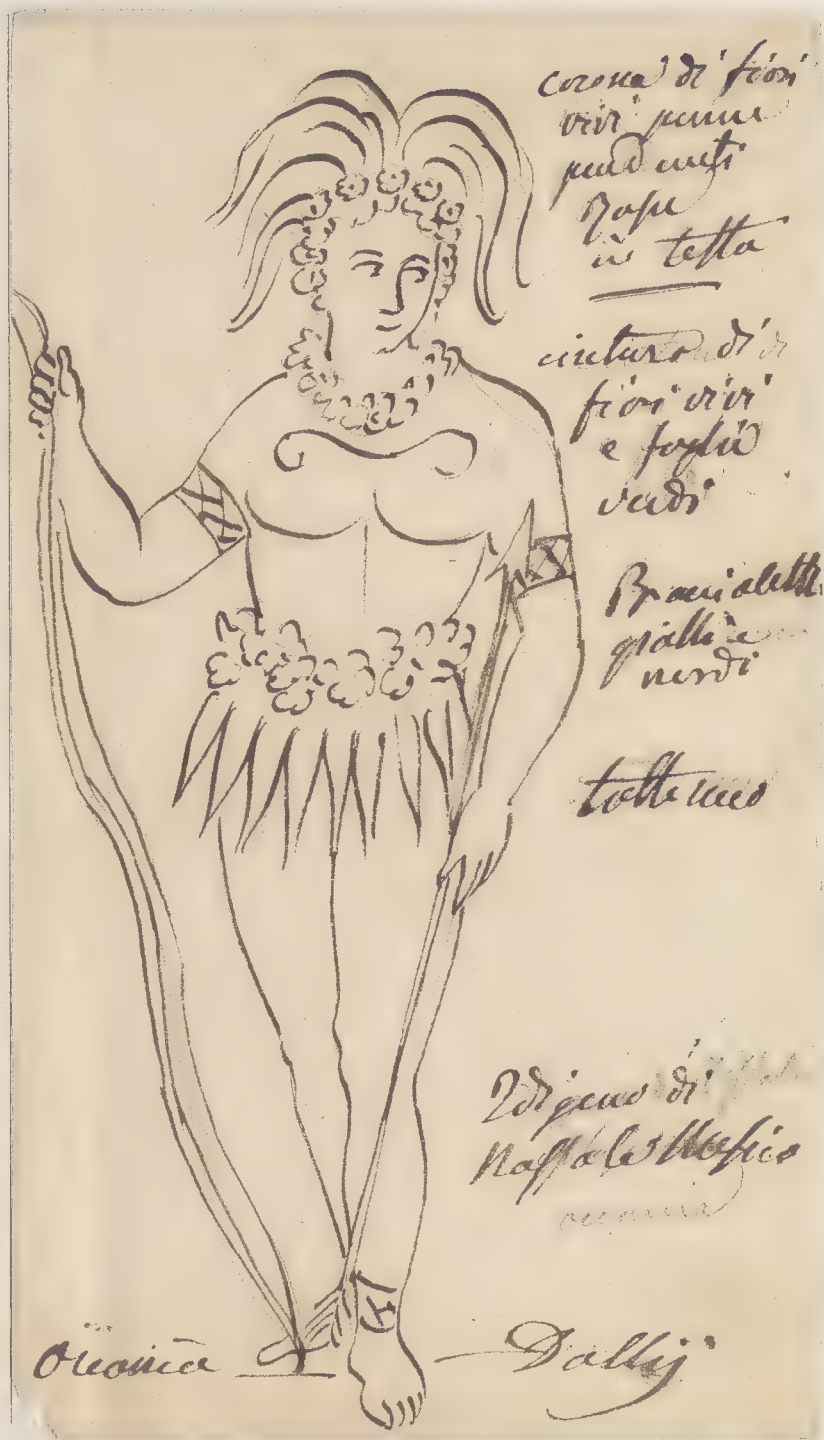 corona di fiori
vivi penne
pendenti
Rose
in testa
cintura di
fiori vivi
e foglie
verdi
Braccialetti
gialli e
verdi
Indigeno di
Oceania
Dallij